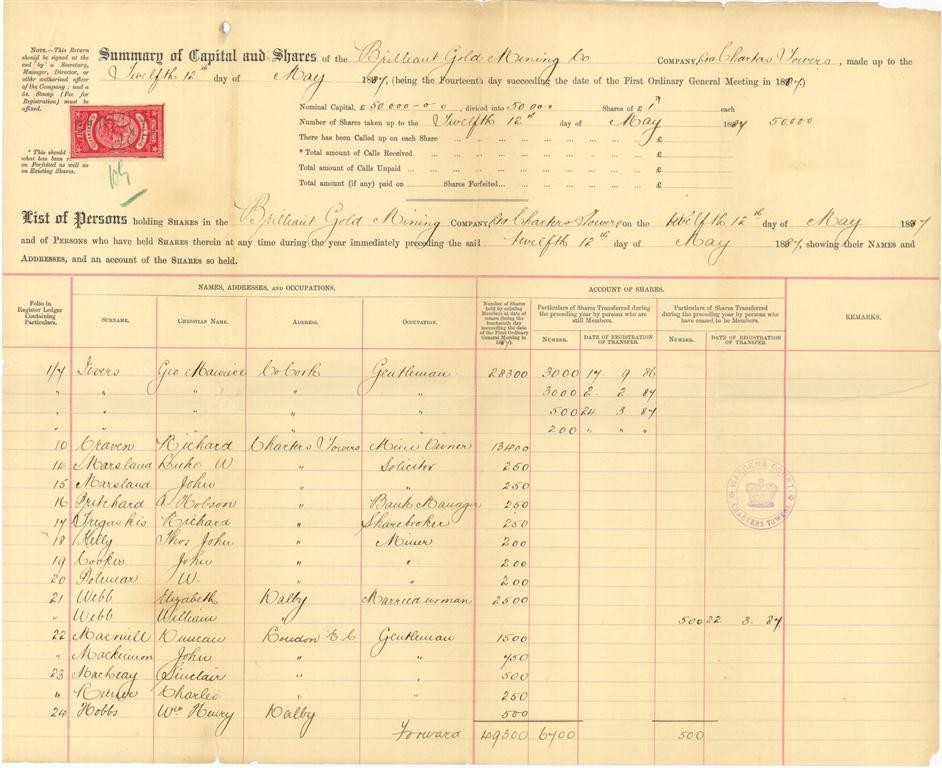 NOTE.—This Return should be signed at the end by a Secretary, Manager, Director, or other authorised officer of the Company; and a 5s. Stamp (Fee for Registration) must be affixed.
Summary of Capital and Shares of the Brilliant Gold Mining Co COMPANY, Charters Towers, made up to the
Twelfth 12th day of May 1887, (being the Fourteenth day succeeding the date of the First Ordinary General Meeting in 1887.)
Nominal Capital, £ 50,000-0-0, divided into 50,000 Shares of £ 1 each
Number of Shares taken up to the Twelfth 12th day of May 1887 50,000
There has been Called up on each Share ... ... ... ... £
* Total amount of Calls Received ... ... ... ... £
Total amount of Calls Unpaid ... ... ... ... £
Total amount (if any) paid on Shares Forfeited... ... ... ... £
* This should
what has been
on Forfeited as well as
on Existing Shares.
List of Persons holding SHARES in the Brilliant Gold Mining COMPANY, Charters Towers on the twelfth 12th day of May 1887
and of PERSONS who have held SHARES therein at any time during the year immediately preceding the said twelfth 12th day of May 1887, showing their NAMES and
ADDRESSES, and an account of the SHARES so held.
NAMES, ADDRESSES, AND OCCUPATIONS. ACCOUNT OF SHARES.
Folio in Register Ledger Containing Particulars. SURNAME. CHRISTIAN NAME. ADDRESS. OCCUPATION. Number of Shares held by existing Members at date of return (being the fourteenth day succeeding the date of the First Ordinary General Meeting in 1887) Particulars of Shares Transferred during the preceding year by persons who are still Members. Particulars of Shares Transferred during the preceding year by persons who have ceased to be Members. REMARKS.
NUMBER. DATE OF REGISTRATION OF TRANSFER. NUMBER. DATE OF REGISTRATION OF TRANSFER.
1/7 Ievers Geo Maurice Co Cork Gentleman 28300 3000 17 9 86
" " " " " 3000 2 2 87
" " " " " 500 24 3 87
" " " " " 200 " " "
10 Craven Richard Charters Towers Mine Owner 13400
Marsland Luke W " Solicitor 250
15 Marsland John " " 250
16 Pritchard A. Hobson " Bank Manager 250
17 Tregaskis Richard " Sharebroker 250
18 Kelly Thos John " Miner 200
19 John " " 200
20 W. " " 200
21 Webb Elizabeth Dalby Married woman 2500
" Webb William 500 22 3 87
22 Macneill Duncan London E.C. Gentleman 1500
" Mackinnon John " " 750
23 Mackay Sinclair " " 500
" Charles " " 250
24 Hobbs Wm Henry Dalby 500
Forward 49300 6700 500
WARDENS COURT
CHARTERS TOWERS